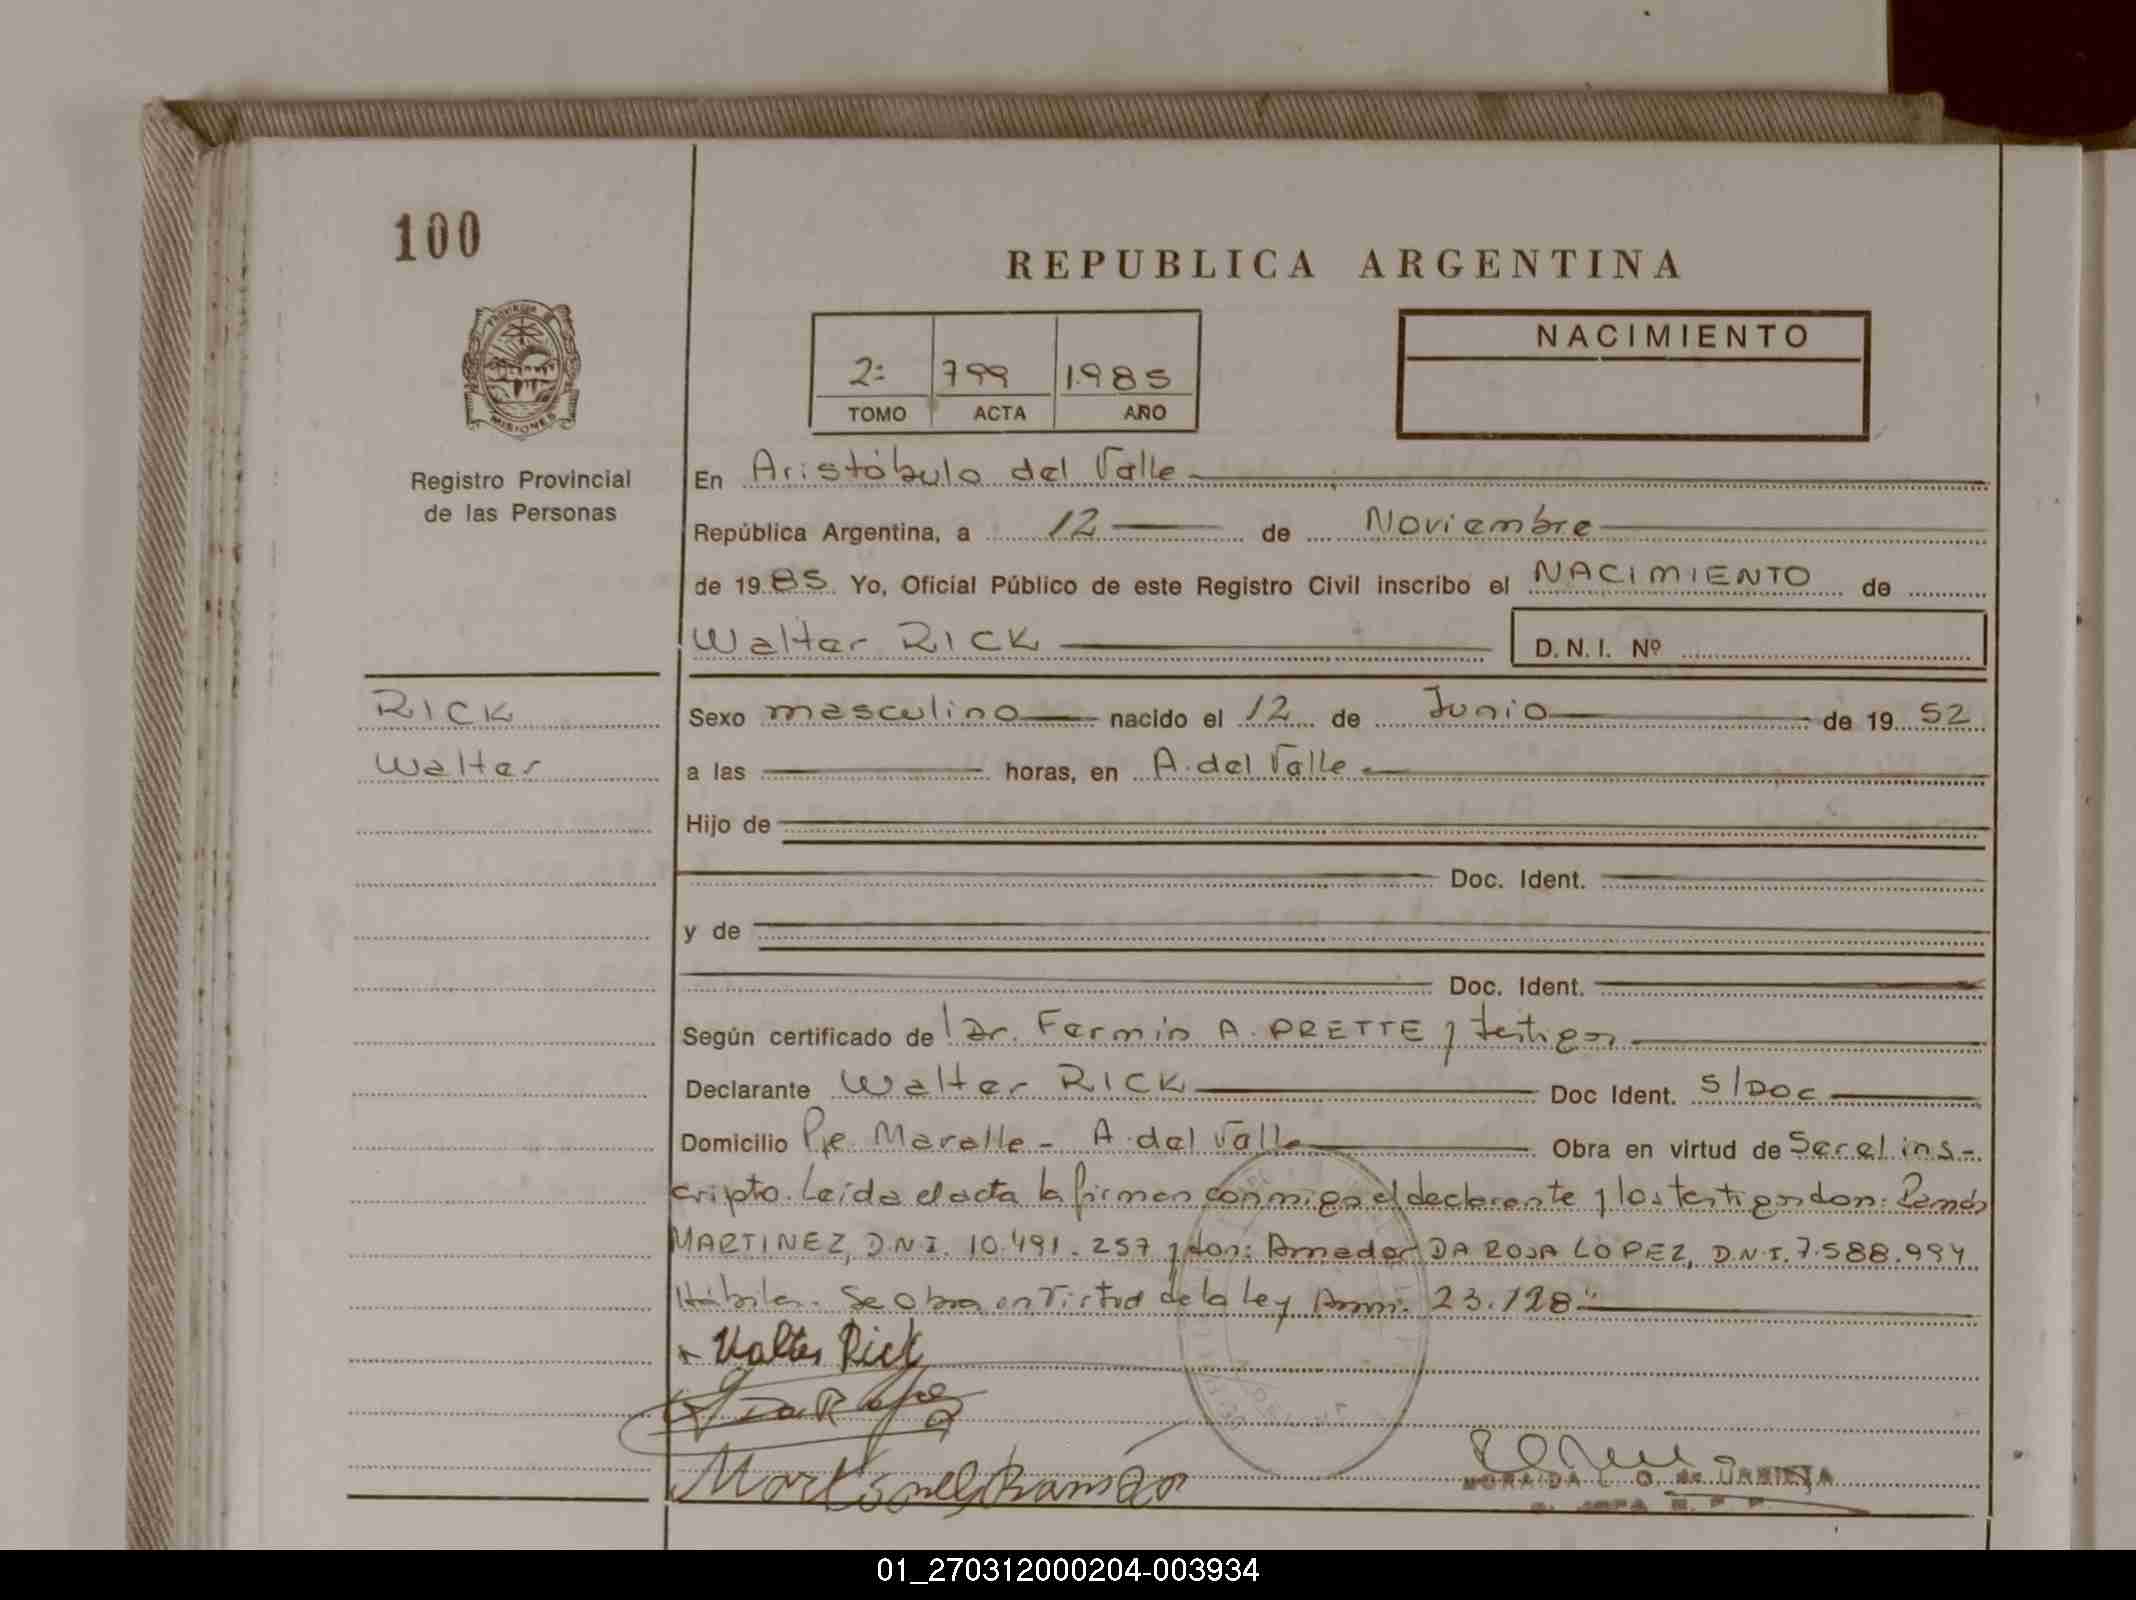 100
REPUBLICA ARGENTINA
NACIMIENTO
2ª 799 1.985
TOMO ACTA AÑO
PROVINCIA
MISIONES
Registro Provincial
de las Personas
En Aristóbulo del Valle
República Argentina, a 12 de Noviembre
de 1985 Yo, Oficial Público de este Registro Civil inscribo el NACIMIENTO de
Walter RICK D.N.I. Nº
RICK
Walter
Sexo masculino nacido el 12 de Junio de 1952
a las horas, en A. del Valle
Hijo de
Doc. Ident.
y de
Doc. Ident.
Según certificado de Dr. Fermin A. PRETTE y testigos
Declarante Walter RICK Doc Ident. S/DOC
Domicilio Pje. Maralle - A. del Valle Obra en virtud de Ser el ins-
cripto. Leída el acta la firman conmigo el declarante y los testigos don: Ramón
MARTINEZ, D.N.I. 10.491.257 y don: Amador DA ROSA LOPEZ, D.N.I. 7.588.994
Hábiles. Se obra en virtud de la Ley 23.128"
Walter Rick
DaR
URBIETA
01_270312000204-003934